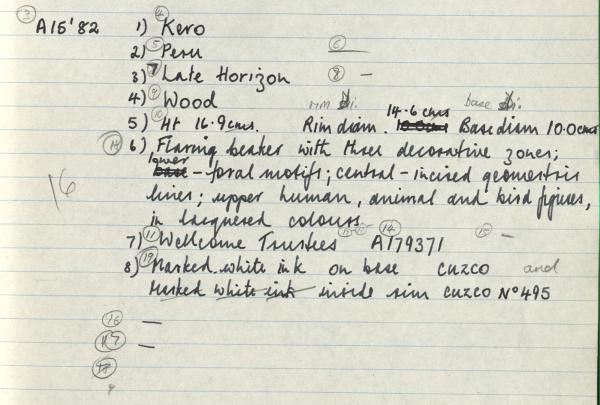 ③ A15'82 1) ④ Kero
2) ⑤ Peru ⑥ —
3) ⑦ Late Horizon ⑧ —
4) ⑨ Wood
rim di: base di:
14.6 cms
5) ⑩ Ht 16.9 cms. Rim diam. Base diam 10.0cms
6) Flaring beaker with three decorative zones;
lower
base – foral motifs; central – incised geometric
16
lines; upper human, animal and bird figures,
in lacquered colours
7) ⑪ Wellcome Trustees ⑭ A179371 —
8) ⑲ Marked white ink on base CUZCO and
Marked white ink inside rim CUZCO Nº 495
⑯ —
⑰ —
⑱